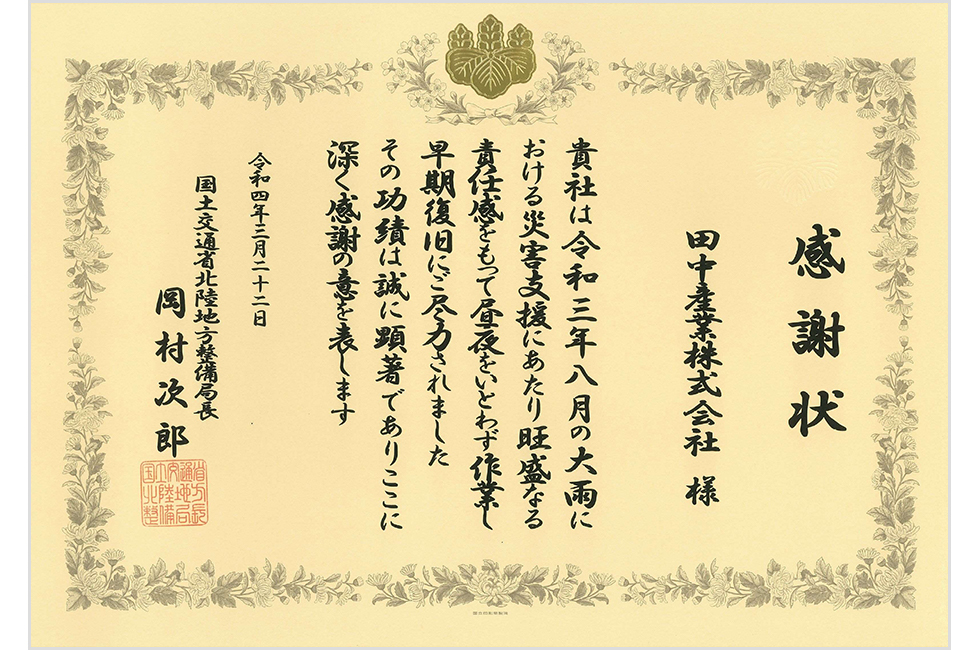 感謝状
田中産業株式会社 様
貴社は令和三年八月の大雨に
おける災害支援にあたり旺盛なる
責任感をもって昼夜をいとわず作業し
早期復旧にご尽力されました
その功績は誠に顕著でありここに
深く感謝の意を表します
令和四年三月二十二日
国土交通省北陸地方整備局長
岡村次郎